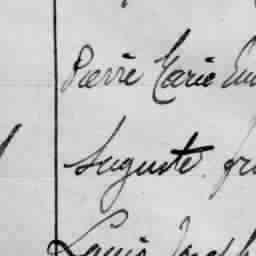 Pierre Marie Em
Auguste fr
Louis Joseph